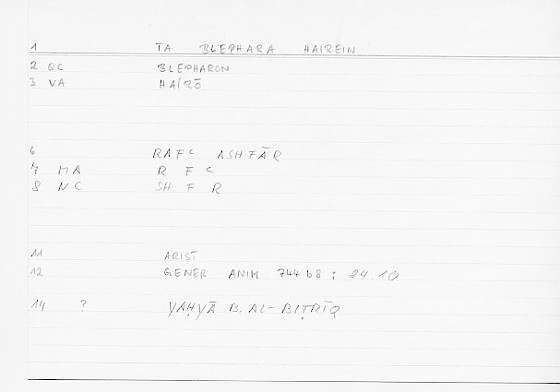 1 TA BLEPHARA HAIREIN
2 QC BLEPHARON
3 VA HAIRŌ
6 RAFC ASHFĀR
7 MA R F C
8 NC SH F R
11 ARIST
12 GENER ANIM 744 b8 ; 84.10
14 ? YAḤYĀ B. AL-BIṬRĪQ